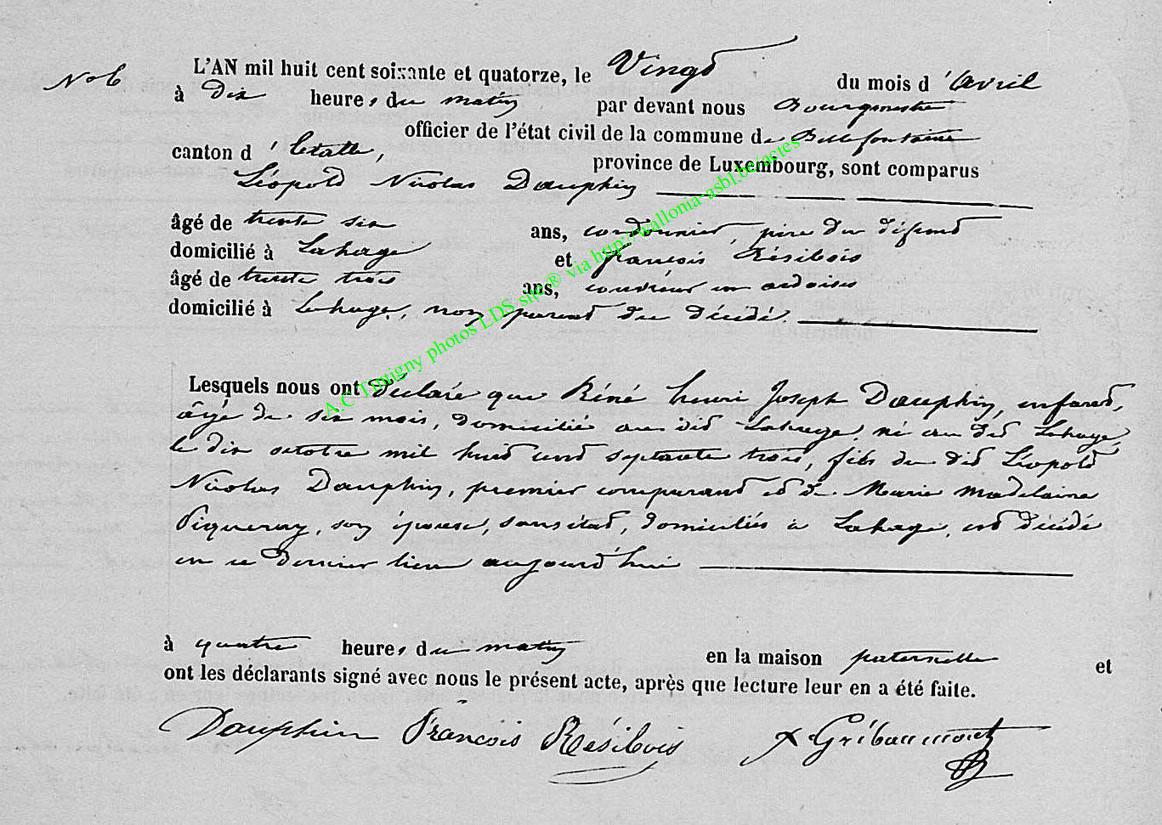 L'AN mil huit cent soixante et quatorze, le Vingt du mois d'Avril
No 6
à dix heures du matin par devant nous Bourgmestre
officier de l'état civil de la commune de Bellefontaine
canton d'Etalle, province de Luxembourg, sont comparus
Léopold Nicolas Dauphin
âgé de trente six ans, cordonnier, père du défunt
domicilié à Lahage et françois Résibois
âgé de trente trois ans, couvreur en ardoises
domicilié à Lahage, non parent du décédé.
Lesquels nous ont déclaré que Réné henri Joseph Dauphin, enfant,
âgé de six mois, domicilié au dit Lahage, né au dit Lahage,
le dix octobre mil huit cent septante trois, fils du dit Léopold
Nicolas Dauphin, premier comparant et de Marie Madelaine
Piqueray, son épouse, sans état, domiciliés à Lahage, est décédé
en ce dernier lieu aujourd'hui
à quatre heures du matin en la maison paternelle et
ont les déclarants signé avec nous le présent acte, après que lecture leur en a été faite.
Dauphin François Résibois
A.C Tintigny photos LDS site® via http://wallonia-asbl.be/actes